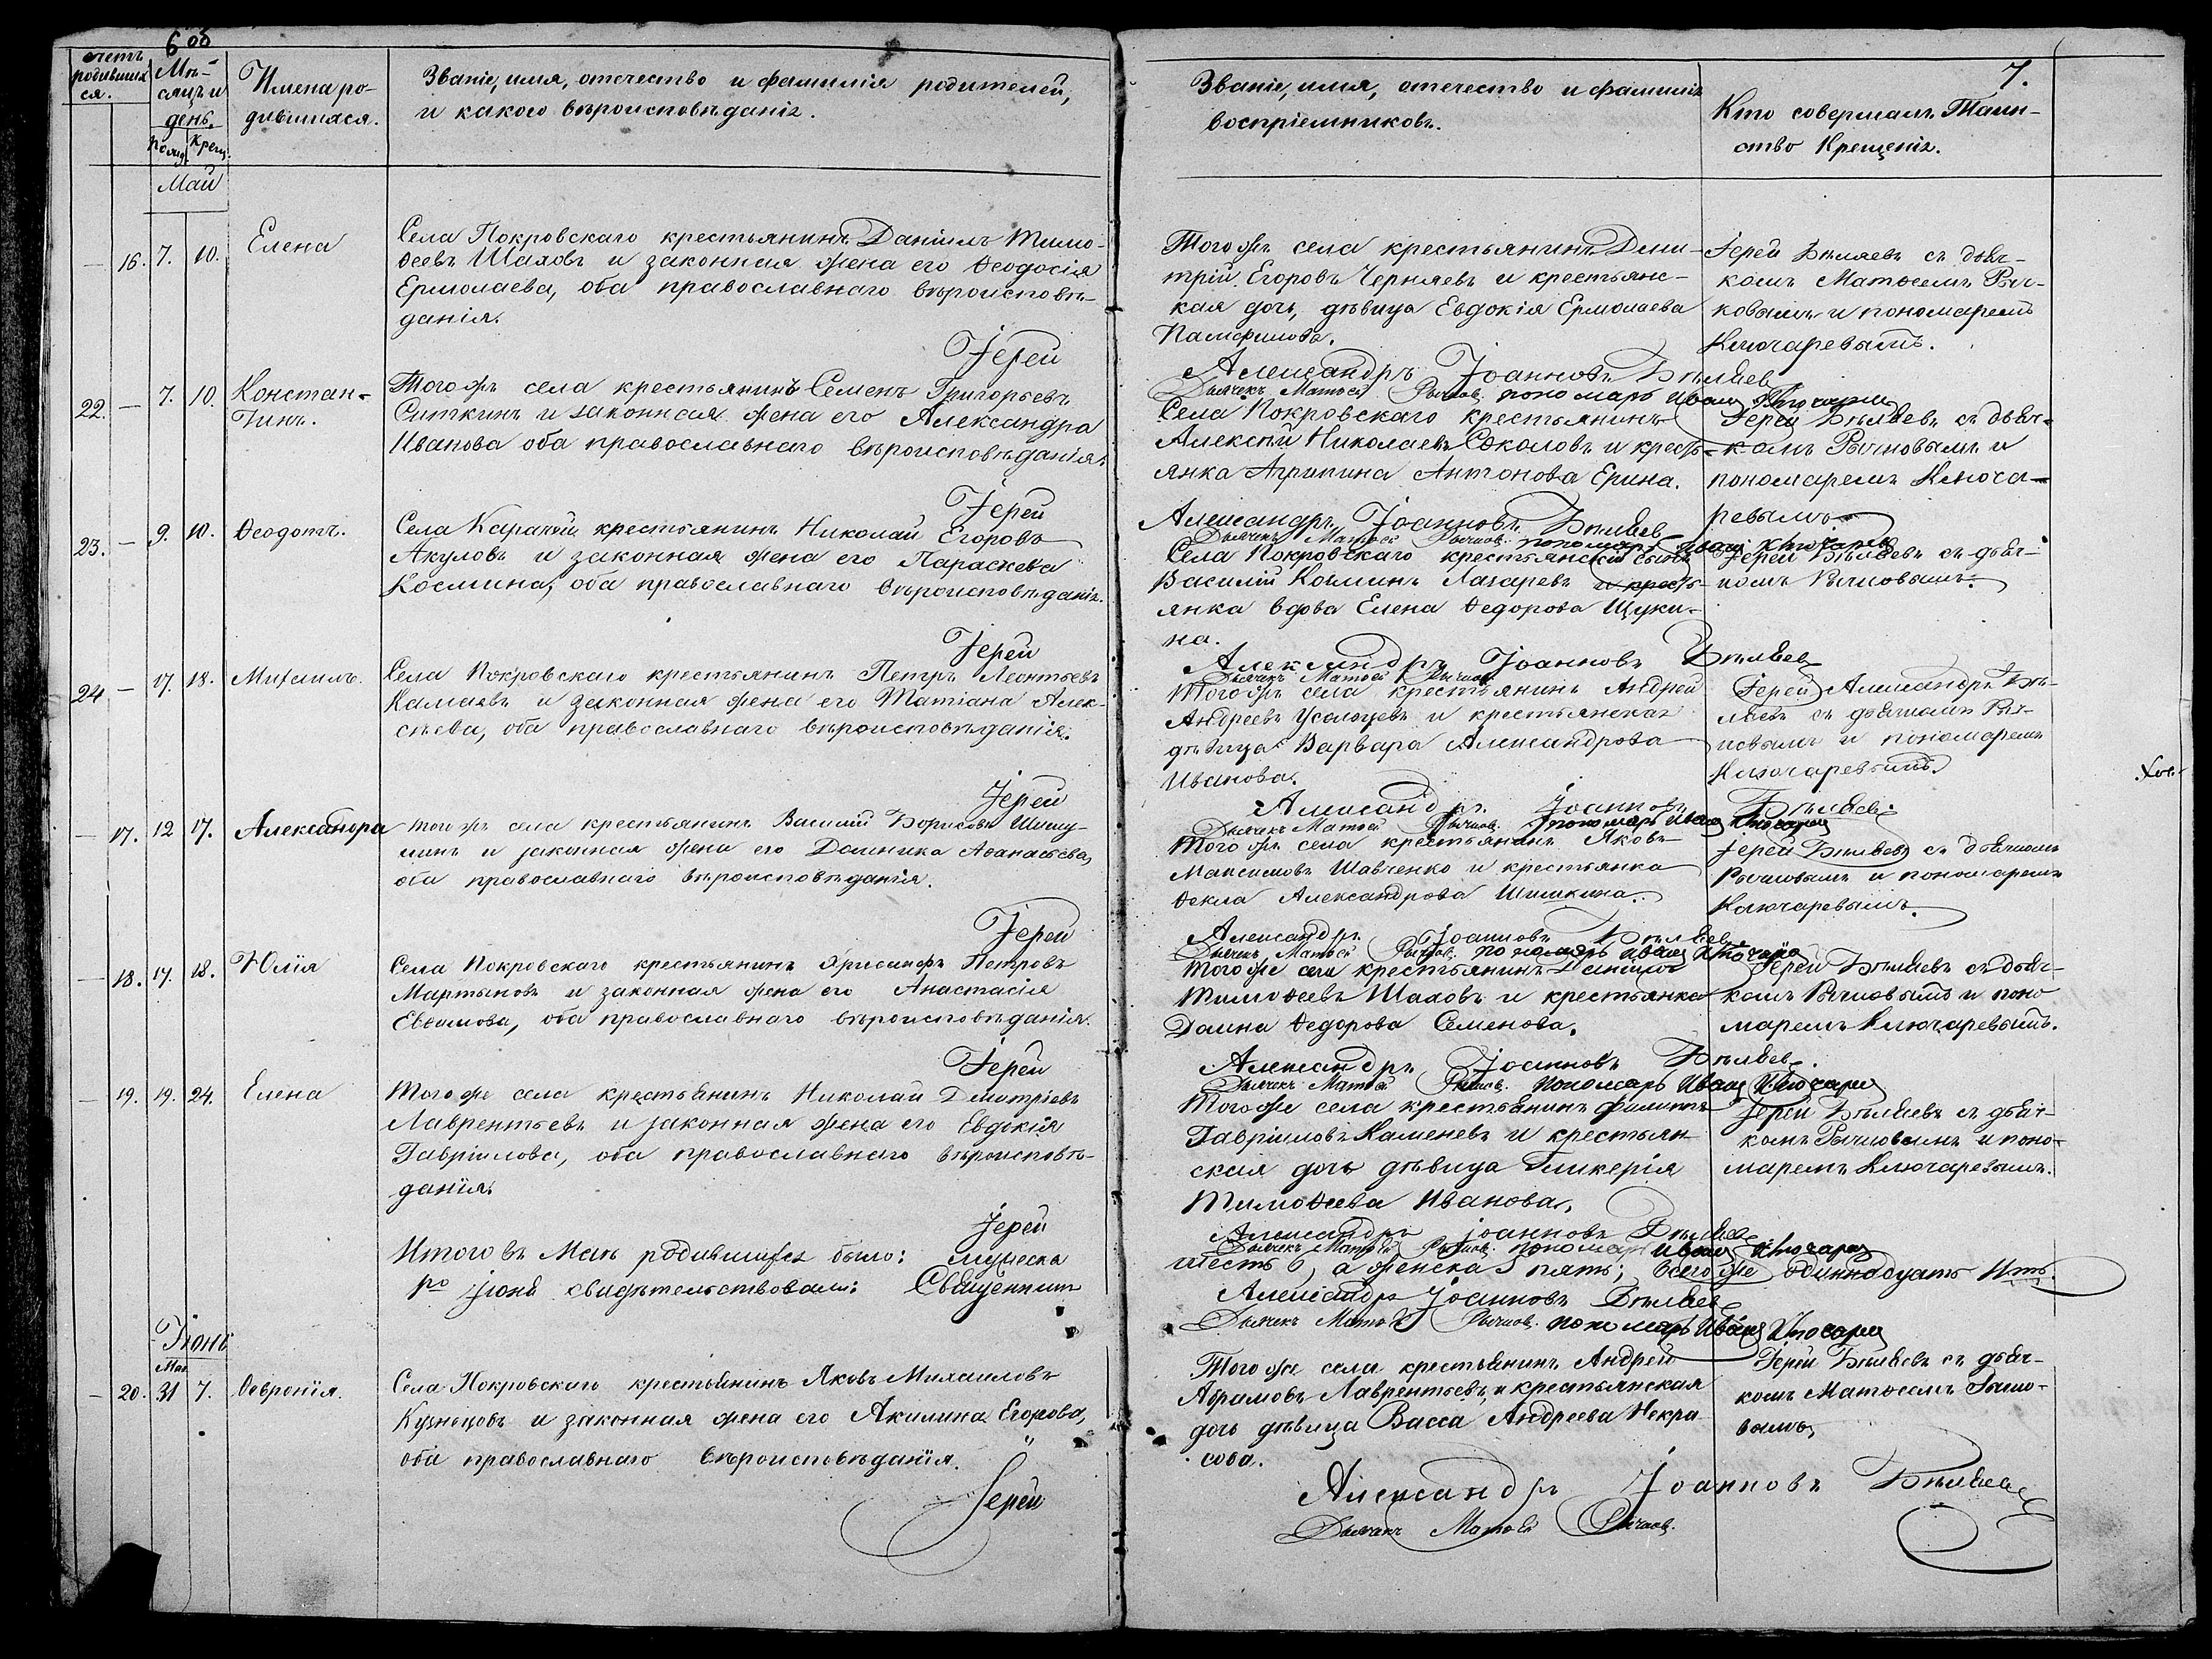 6 об
счетъ родивших-
ся.
Мѣ-
сяцъ и
день.
Рожд. Крещ.
Имена ро-
дившихся.
Званіе, имя, отечество и фамилія родителей,
и какого вѣроисповѣданія.
Май
16. 7. 10. Елена
Села Покровскаго крестьянинъ Даніилъ Тимо-
ѳеевъ Шаховъ и законная жена его Ѳеодосія
Ермолаева, оба православнаго вѣроисповѣ-
данія.
Іерей
22. — 7. 10. Констан-
тинъ.
Тогожъ села крестьянинъ Семенъ Григорьевъ
Ситкинъ и законная жена его Александра
Иванова оба православнаго вѣроисповѣданія.
Іерей
23. — 9. 10. Ѳеодотъ.
Села Карачей крестьянинъ Николай Егоровъ
Акуловъ и законная жена его Параскева
Космина, оба православнаго вѣроисповѣданія.
Іерей
24 — 17. 18. Михаилъ.
Села Покровскаго крестьянинъ Петръ Леонтьевъ
Камаевъ и законная жена его Татіана Алек-
сѣева, оба православнаго вѣроисповѣданія.
Іерей
— 17. 12 17. Александра
Тогожъ села крестьянинъ Василій Борисовъ
и законная жена его Домника Аѳанасьева,
оба православнаго вѣроисповѣданія.
Іерей
— 18. 17. 18. Юлія
Села Покровскаго крестьянинъ Хрисанфъ Петровъ
Мартыновъ и законная жена его Анастасія
оба православнаго вѣроисповѣданія.
Іерей
— 19. 19. 24. Елена
Тогоже села крестьянинъ Николай Димитріевъ
Лаврентьевъ и законная жена его Евдокія
Гавріилова, оба православнаго вѣроисповѣ-
данія.
Іерей
Итого въ Маѣ родившихся было: мужеска
свидѣтельствовали: Священникъ
Іюнь
Мая
— 20. 31 7. Ѳевронія.
Села Покровскаго крестьянинъ Яковъ Михаиловъ
Кузнецовъ и законная жена его Акилина Егорова,
оба православнаго вѣроисповѣданія.
Іерей
7.
Званіе, имя, отечество и фамилія
воспріемниковъ.
Кто совершалъ Таин-
ство Крещенія.
Тогожъ села крестьянинъ Дими-
трій Егоровъ Черняевъ и крестьянс-
кая дочь, дѣвица Евдокія Ермолаева
Памфилова.
Іерей Бѣляевъ съ дьяч-
комъ Матѳеемъ Рыч-
ковымъ и пономаремъ
Ключаревымъ.
Александръ Іоанновъ Бѣляевъ
Дьячекъ Матѳей Рычковъ. пономарь Иванъ Ключаревъ
Села Покровскаго крестьянинъ
Алексѣй Николаевъ Соколовъ и кресть-
янка Агрипина Антонова Ерина.
Іерей Бѣляевъ съ дьяч-
комъ Рычковымъ и
пономаремъ Ключа-
ревымъ.
Александръ Іоанновъ Бѣляевъ
Дьячекъ Матѳей Рычковъ. пономарь Иванъ Ключаревъ
Села Покровскаго крестьянскій сынъ
Василій Козминъ Лазаревъ и кресть-
янка вдова Елена Ѳедорова Щуки-
на.
Іерей Бѣляевъ съ дьяч-
комъ Рычковымъ.
Александръ Іоанновъ Бѣляевъ
Дьячекъ Матѳей Рычковъ.
Тогожъ села крестьянинъ Андрей
Андреевъ Усольцевъ и крестьянская
дѣвица Варвара Александрова
Иванова.
Іерей Александръ Бѣ-
ляевъ съ дьячкомъ Рыч-
ковымъ и пономаремъ
Ключаревымъ.
Александръ Іоанновъ Бѣляевъ
Дьячекъ Матѳей Рычковъ. пономарь Иванъ Ключаревъ
Тогожъ села крестьянинъ Яковъ
Максимовъ Шавченко и крестьянка
Ѳекла Александрова Шишкина.
Іерей Бѣляевъ съ дьячкомъ
Рычковымъ и пономаремъ
Ключаревымъ.
Александръ Іоанновъ Бѣляевъ
Дьячекъ Матѳей Рычковъ. пономарь Иванъ Ключаревъ
Тогоже села крестьянинъ Даніилъ
Тимоѳеевъ Шаховъ и крестьянка
Домна Ѳедорова Семенова.
Іерей Бѣляевъ съ дьяч-
комъ Рычковымъ и поно-
маремъ Ключаревымъ.
Александръ Іоанновъ Бѣляевъ.
Дьячекъ Матѳей Рычковъ. пономарь Иванъ Ключаревъ
Тогоже села крестьянинъ Филиппъ
Гавріиловъ Каменевъ и крестьян-
ская дочь дѣвица Гликерія
Тимоѳеева Иванова.
Іерей Бѣляевъ съ дьяч-
комъ Рычковымъ и поно-
маремъ Ключаревымъ.
Александръ Іоанновъ Бѣляевъ
Дьячекъ Матѳей Рычковъ. пономарь Иванъ Ключаревъ
шесть 6, а женска 5 пять; всего же одиннадцать
Александръ Іоанновъ Бѣляевъ
Дьячекъ Матѳей Рычковъ. пономарь Иванъ Ключаревъ
Тогоже села крестьянинъ Андрей
Абрамовъ Лаврентьевъ, и крестьянская
дочь дѣвица Васса Андреева Некра-
сова.
Іерей Бѣляевъ съ дьяч-
комъ Матѳеемъ Рычко-
вымъ
Александръ Іоанновъ Бѣляевъ
Дьячекъ Матѳей Рычковъ.